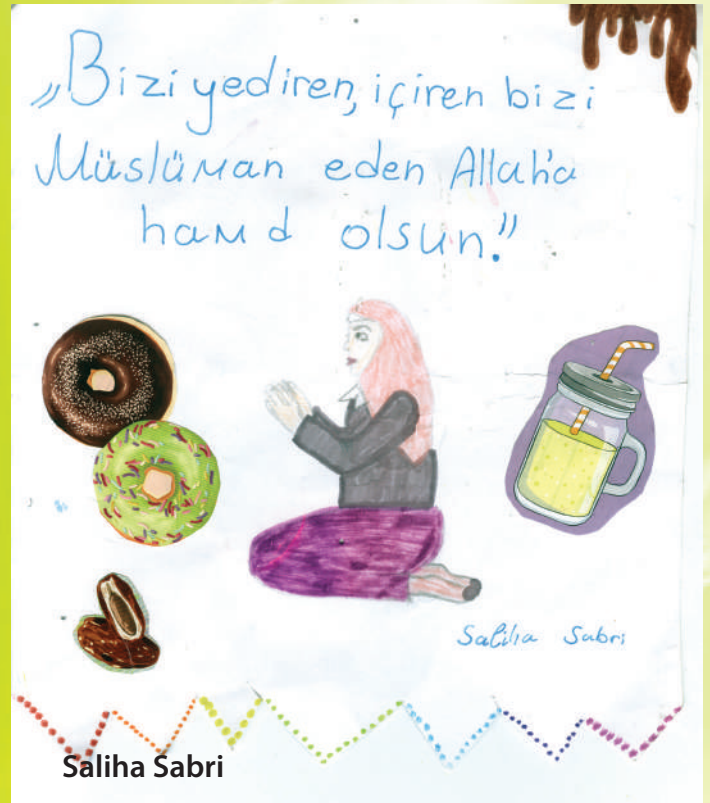 „Bizi yediren, içiren bizi
Müslüman eden Allah'a
hamd olsun."
Saliha Sabri
Saliha Sabri